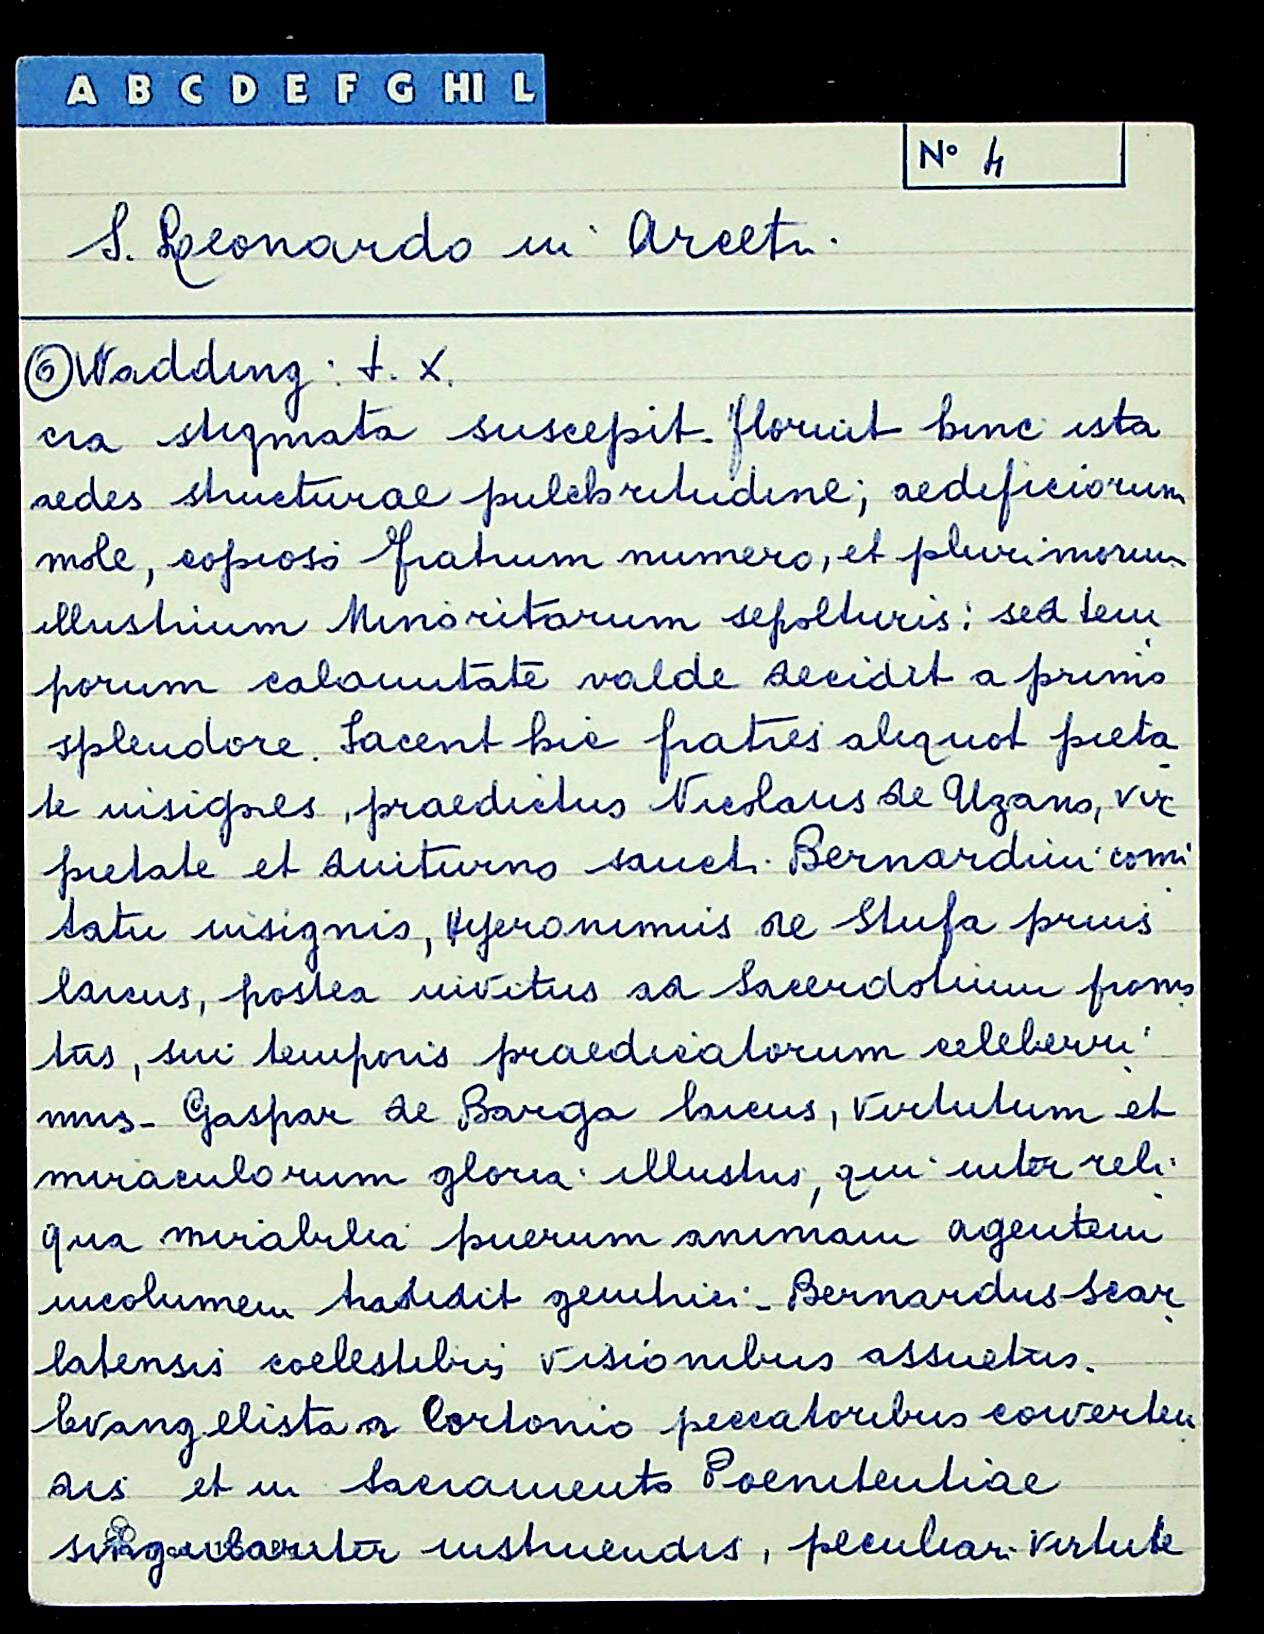 A B C D E F G HI L
N° 4
S. Leonardo in Arcetri.
⑥ Wadding: t. X.
cra stigmata suscepit. floruit hinc ista
aedes structurae pulchritudine; aedificiorum
mole, copioso fratrum numero, et plurimorum
illustrium Minoritarum sepolturis: sed tem
porum calamitate valde decidit a primo
splendore. Iacent hic fratres aliquot pieta
te insignes, praedictus Nicolaus de Uzano, vir
pietate et diuturno sancti Bernardini comi
tatu insignis, Hyeronimus de Stufa prius
laicus, postea invitus ad Sacerdotium promo
tus, sui temporis praedicatorum celeberri
mus - Gaspar de Barga laicus, virtutum et
miraculorum gloria illustris, qui inter reli
qua mirabilia puerum animam agentem
incolumem tradidit genitrici - Bernardus Scar
latensis coelestibus visionibus assuetus.
Evangelista a Cortonio peccatoribus converten
dis et in Sacramento Poenitentiae
singulariter instruendis, peculiari virtute